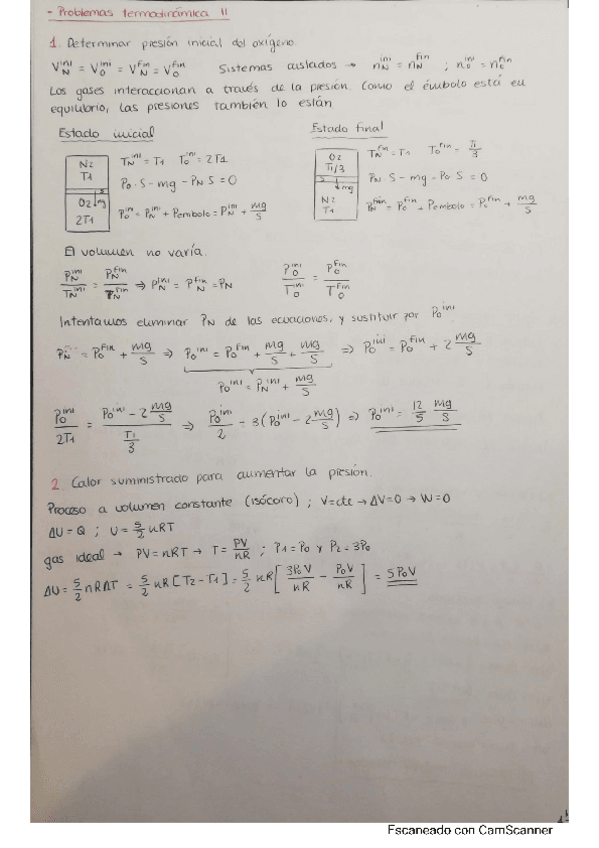 - Problemas termodinámica II
1. Determinar presión inicial del oxígeno.
V_N^ini = V_O^ini = V_N^fin = V_O^fin   Sistemas aislados → n_N^ini = n_N^fin ; n_O^ini = n_O^fin
Los gases interaccionan a través de la presión. Como el émbolo está en
equilibrio, las presiones también lo están
Estado inicial
N2
T1
O2 mg
2T1
T_N^ini = T1   T_O^ini = 2T1
P_O · S - mg - P_N S = 0
P_O^ini = P_N^ini + Pembolo = P_N^ini + mg/S
Estado final
O2
T1/3
S mg
N2
T1
T_N^fin = T1   T_O^fin = T1/3
P_N S - mg - P_O S = 0
P_N^fin = P_O^fin + Pembolo = P_O^fin + mg/S
El volumen no varía.
P_N^ini/T_N^ini = P_N^fin/T_N^fin ⇒ P_N^ini = P_N^fin = P_N   P_O^ini/T_O^ini = P_O^fin/T_O^fin
Intentamos eliminar P_N de las ecuaciones, y sustituir por P_O^ini
P_N^ini = P_O^fin + mg/S ⇒ P_O^ini = P_O^fin + mg/S + mg/S ⇒ P_O^ini = P_O^fin + 2 mg/S
P_O^ini = P_N^ini + mg/S
P_O^ini/2T1 = (P_O^ini - 2 mg/S)/(T1/3) ⇒ P_O^ini/2 = 3(P_O^ini - 2 mg/S) ⇒ P_O^ini = 12/5 mg/S
2. Calor suministrado para aumentar la presión.
Proceso a volumen constante (isócoro) ; V=cte → ΔV=0 → W=0
ΔU = Q ; U = 5/2 nRT
gas ideal → PV = nRT → T = PV/nR ; P1 = P0 y P2 = 3P0
ΔU = 5/2 nRΔT = 5/2 nR[T2-T1] = 5/2 nR[3P0V/nR - P0V/nR] = 5P0V
Escaneado con CamScanner